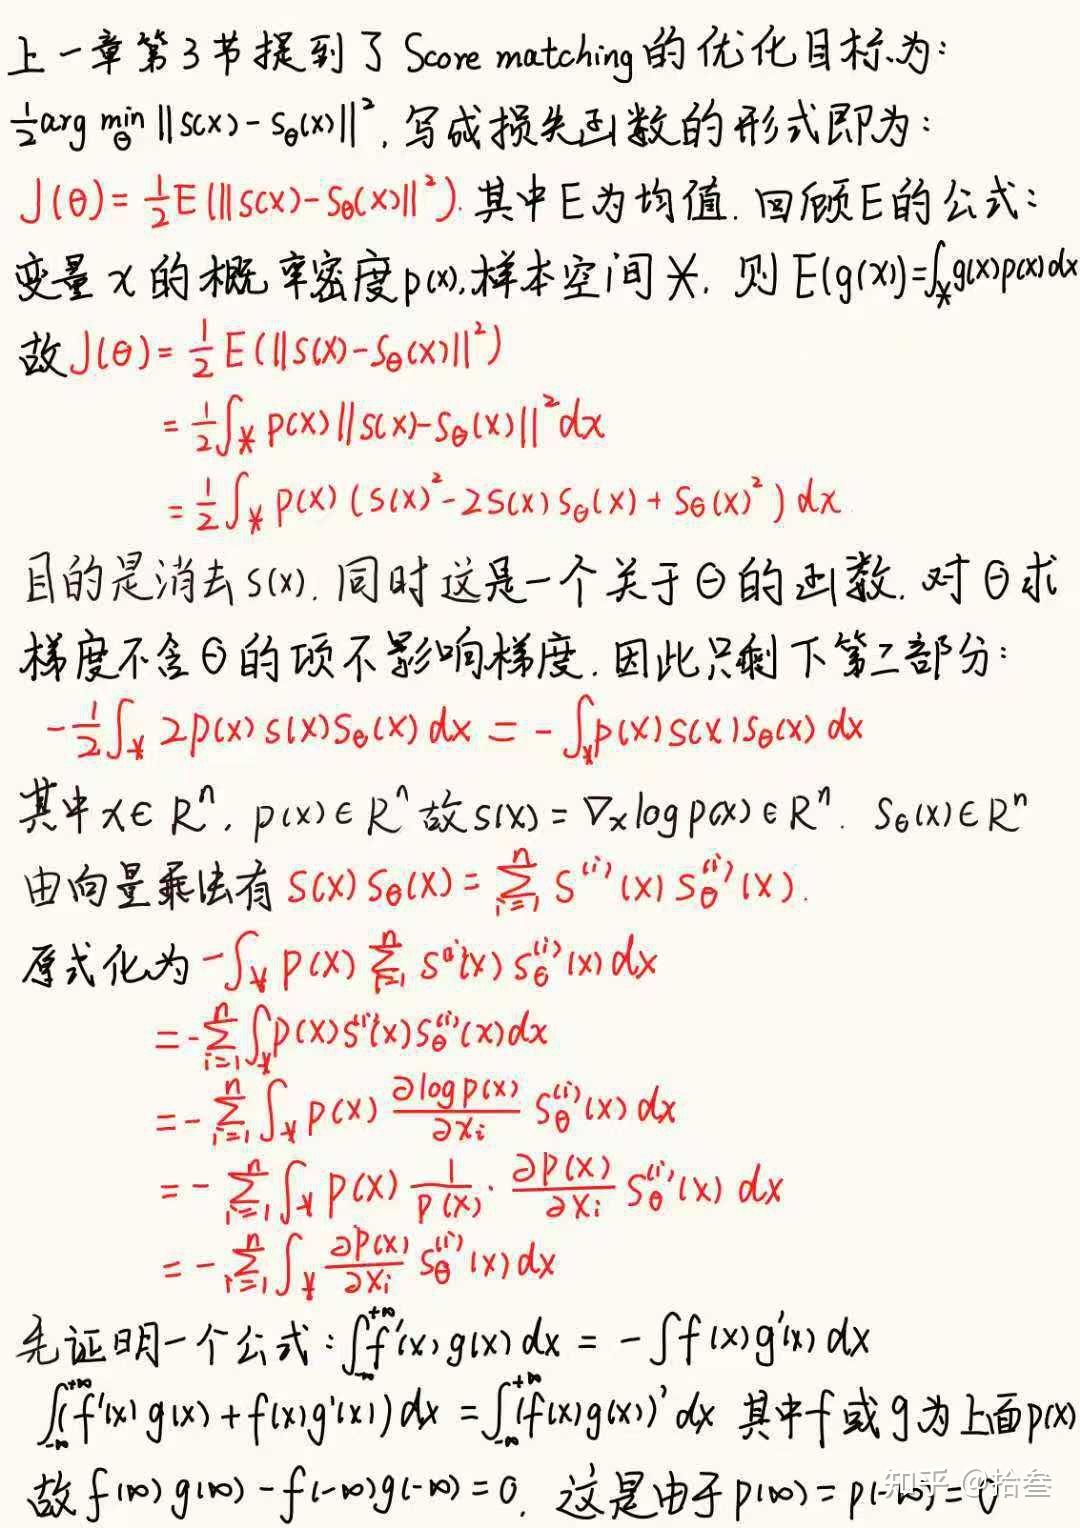 上一章第3节提到了 Score matching的优化目标为:
½arg min_θ ||s(x)-s_θ(x)||², 写成损失函数的形式即为:
J(θ)=½E(||s(x)-s_θ(x)||²). 其中E为均值. 回顾E的公式:
变量x的概率密度p(x),样本空间X, 则E(g(x))=∫_X g(x)p(x)dx
故J(θ)=½E(||s(x)-s_θ(x)||²)
=½∫_X p(x)||s(x)-s_θ(x)||²dx
=½∫_X p(x)(s(x)²-2s(x)s_θ(x)+s_θ(x)²)dx
目的是消去s(x). 同时这是一个关于θ的函数. 对θ求
梯度不含θ的项不影响梯度. 因此只剩下第二部分:
-½∫_X 2p(x)s(x)s_θ(x)dx = -∫_X p(x)s(x)s_θ(x)dx
其中x∈Rⁿ, p(x)∈Rⁿ 故s(x)=∇_x log p(x)∈Rⁿ. s_θ(x)∈Rⁿ
由向量乘法有 s(x)s_θ(x)=∑_{i=1}^n s^{(i)}(x)s_θ^{(i)}(x).
原式化为 -∫_X p(x)∑_{i=1}^n s^{(i)}(x)s_θ^{(i)}(x)dx
=-∑_{i=1}^n ∫_X p(x)s^{(i)}(x)s_θ^{(i)}(x)dx
=-∑_{i=1}^n ∫_X p(x) ∂log p(x)/∂x_i s_θ^{(i)}(x)dx
=-∑_{i=1}^n ∫_X p(x) 1/p(x) · ∂p(x)/∂x_i s_θ^{(i)}(x)dx
=-∑_{i=1}^n ∫_X ∂p(x)/∂x_i s_θ^{(i)}(x)dx
先证明一个公式:∫_{-∞}^{+∞} f'(x)g(x)dx = -∫f(x)g'(x)dx
∫_{-∞}^{+∞}(f'(x)g(x)+f(x)g'(x))dx =∫_{-∞}^{+∞}(f(x)g(x))'dx 其中f或g为上面p(x)
故f(∞)g(∞)-f(-∞)g(-∞)=0. 这是由于p(∞)=p(-∞)=0
知乎 @拾叁